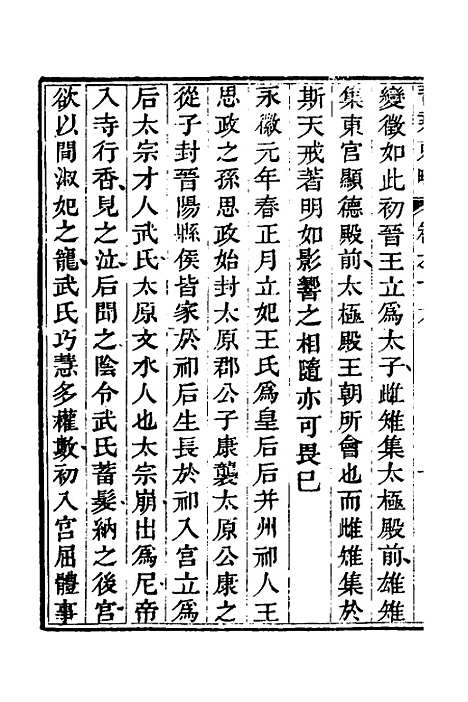 變徵如此初晉王立爲太子雌雉集太極殿前雄雉
集東宮顯德殿前太極殿王朝所會也而雌雉集於
斯天戒著明如影響之相隨亦可畏已
永徽元年春正月立妃王氏爲皇后后并州祁人王
思政之孫思政始封太原郡公子康襲太原公康之
從子封晉陽縣侯皆家於祁后生長於祁入宮立爲
后太宗才人武氏太原文水人也太宗崩出爲尼帝
入寺行香見之泣后聞之陰令武氏蓄髮納之後宮
欲以間淑妃之寵武氏巧慧多權數初入宮屈體事